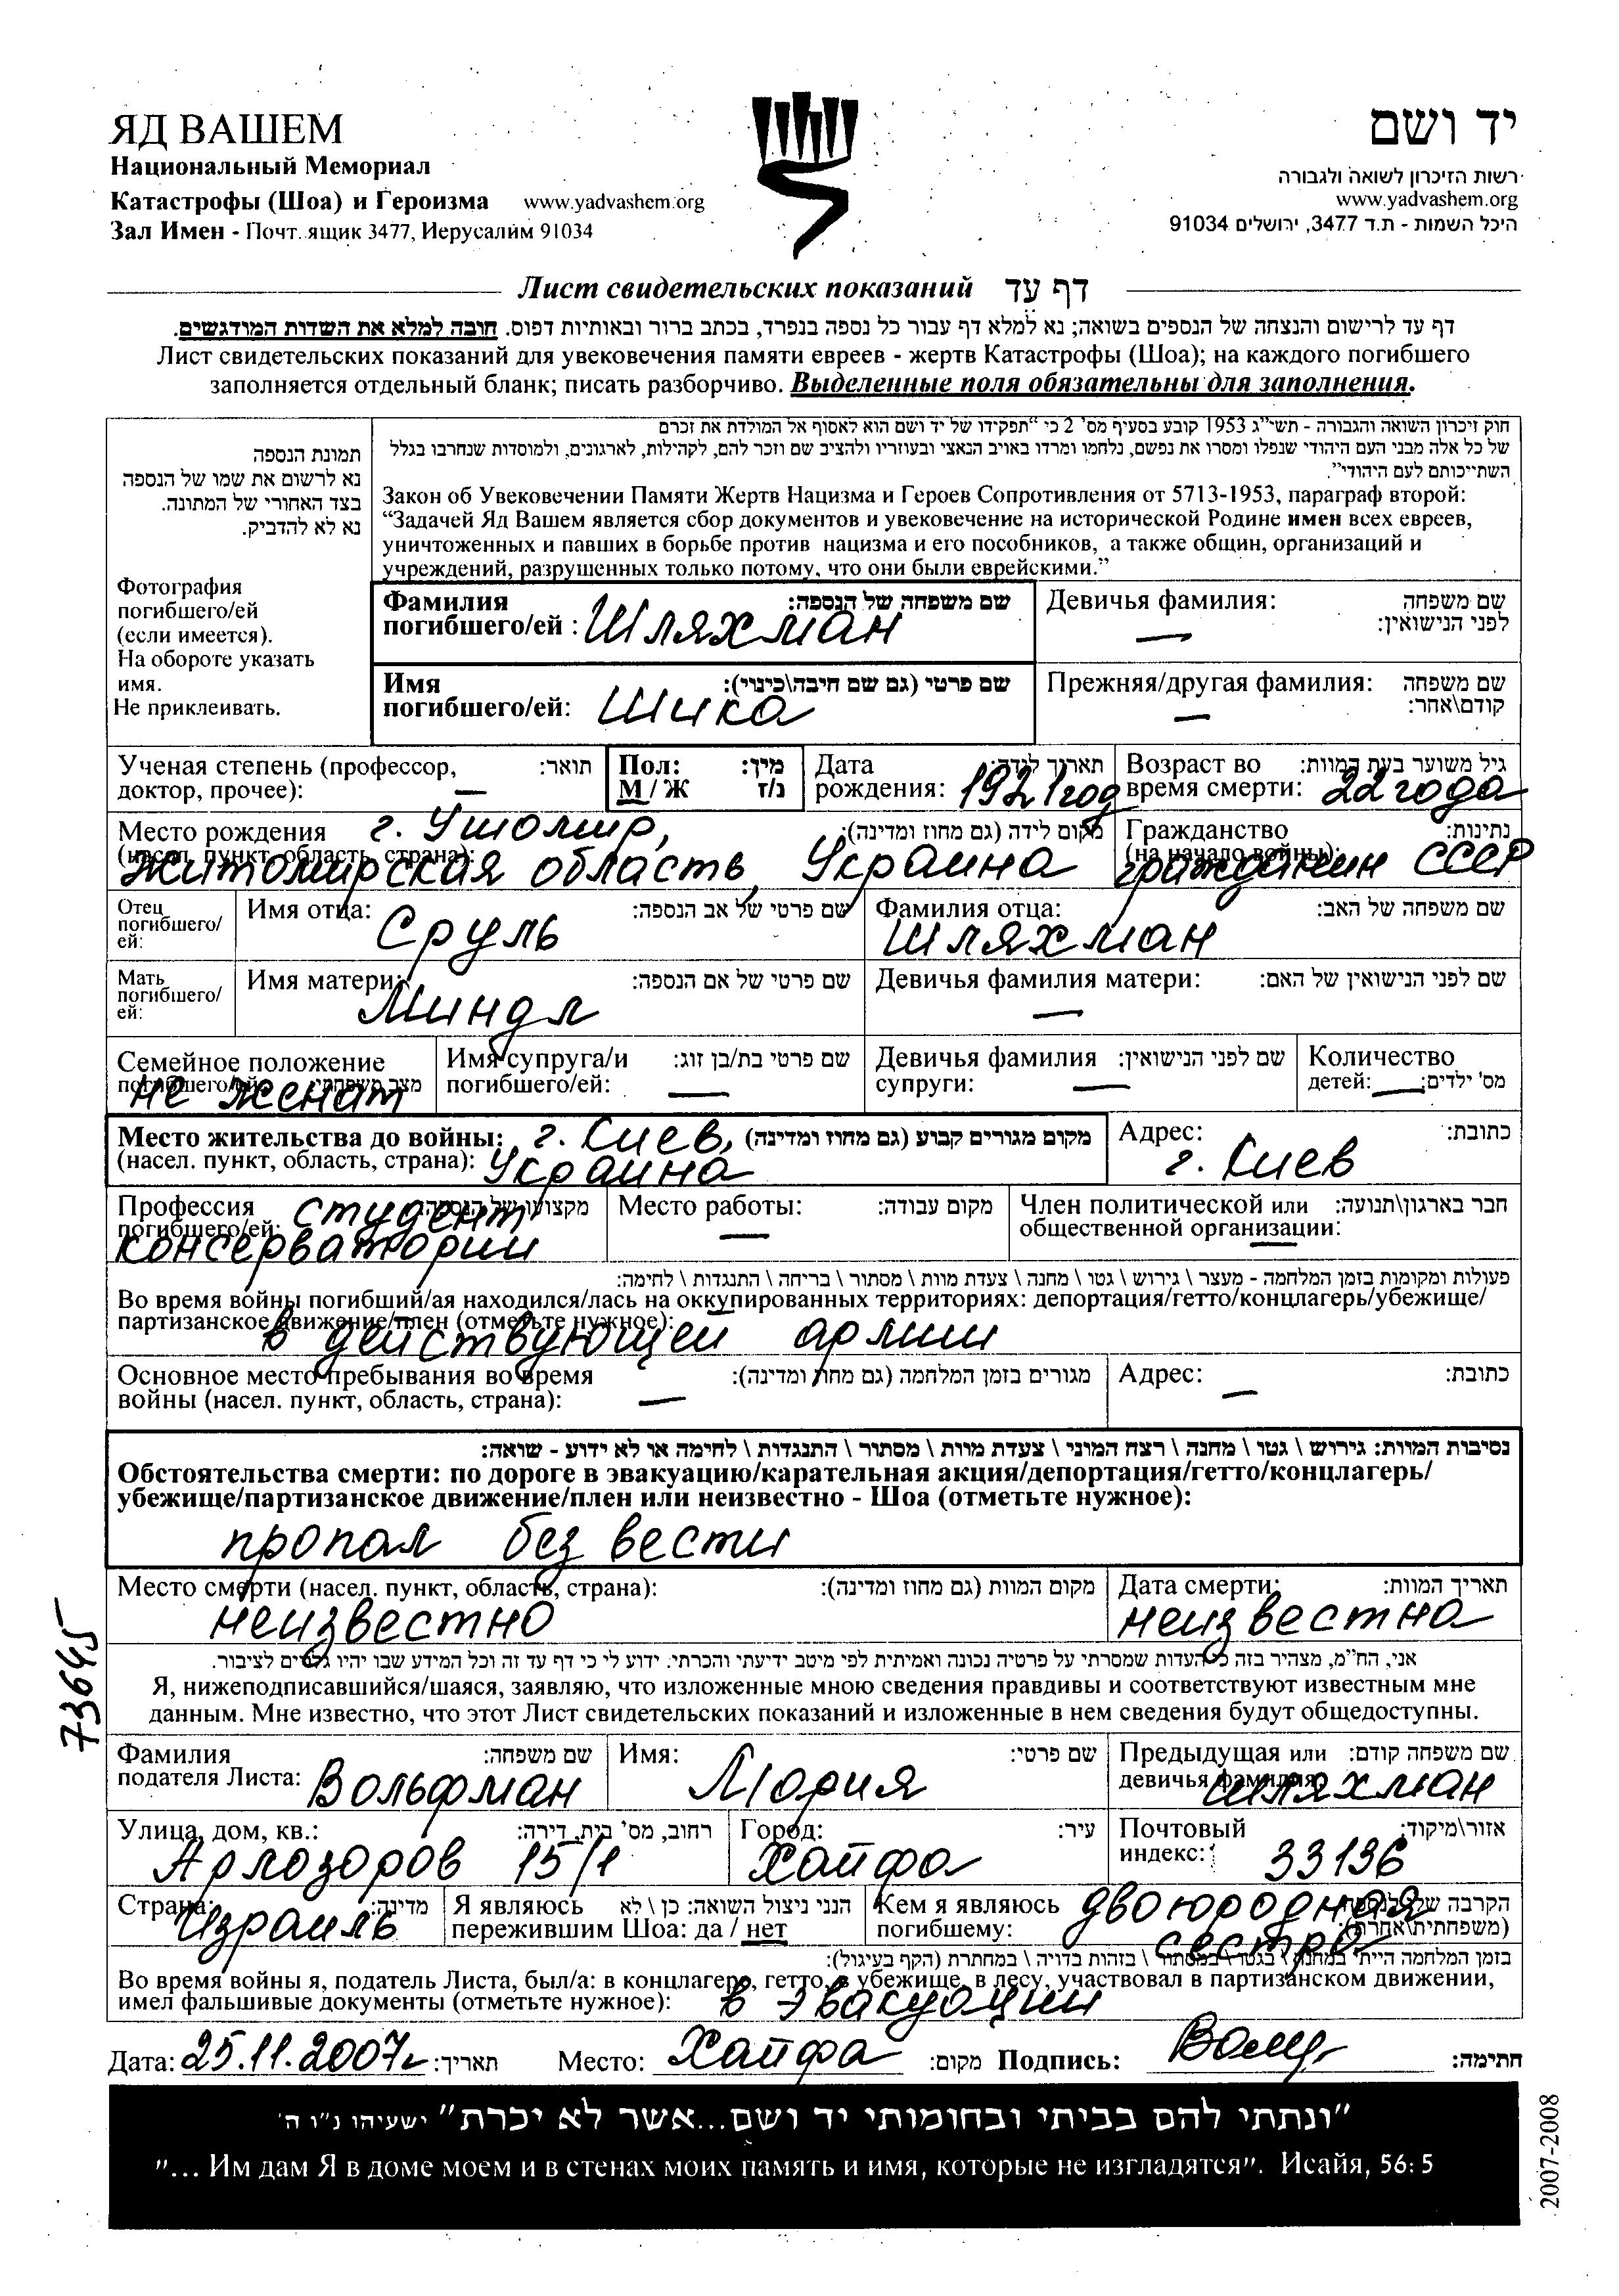 ЯД ВАШЕМ
Национальный Мемориал
Катастрофы (Шоа) и Героизма www.yadvashem.org
Зал Имен - Почт. ящик 3477, Иерусалим 91034
יד ושם
רשות הזיכרון לשואה ולגבורה
www.yadvashem.org
היכל השמות - ת.ד 3477, ירושלים 91034
Лист свидетельских показаний דף עד
דף עד לרישום והנצחה של הנספים בשואה; נא למלא דף עבור כל נספה בנפרד, בכתב ברור ובאותיות דפוס. חובה למלא את השדות המודגשים.
Лист свидетельских показаний для увековечения памяти евреев - жертв Катастрофы (Шоа); на каждого погибшего
заполняется отдельный бланк; писать разборчиво. Выделенные поля обязательны для заполнения.
תמונת הנספה
נא לרשום את שמו של הנספה
בצד האחורי של המתונה.
נא לא להדביק.
Фотография
погибшего/ей
(если имеется).
На обороте указать
имя.
Не приклеивать.
חוק זיכרון השואה והגבורה - תשי"ג 1953 קובע בסעיף מס' 2 כי "תפקידו של יד ושם הוא לאסוף אל המולדת את זכרם
של כל אלה מבני העם היהודי שנפלו ומסרו את נפשם, נלחמו ומרדו באויב הנאצי ובעוזריו ולהציב שם וזכר להם, לקהילות, לארגונים, ולמוסדות שנחרבו בגלל
השתייכותם לעם היהודי".
Закон об Увековечении Памяти Жертв Нацизма и Героев Сопротивления от 5713-1953, параграф второй:
“Задачей Яд Вашем является сбор документов и увековечение на исторической Родине имен всех евреев,
уничтоженных и павших в борьбе против нацизма и его пособников, а также общин, организаций и
учреждений, разрушенных только потому, что они были еврейскими.”
Фамилия שם משפחה של הנספה:
погибшего/ей : Шляхман
Девичья фамилия: שם משפחה
לפני הנישואין:
—
Имя שם פרטי (גם שם חיבה\כינוי):
погибшего/ей: Шика
Прежняя/другая фамилия: שם משפחה
קודם\אחר:
—
Ученая степень (профессор, תואר:
доктор, прочее): —
Пол: מין:
М / Ж נ/ז
Дата תאריך לידה:
рождения: 1921 год
Возраст во גיל משוער בעת המוות:
время смерти: 22 года
Место рождения г. Ушомир, מקום לידה (גם מחוז ומדינה):
(насел. пункт, область, страна):
Житомирская область, Украина
Гражданство נתינות:
(на начало войны):
гражданин СССР
Отец
погибшего/
ей:
Имя отца: שם פרטי של אב הנספה:
Сруль
Фамилия отца: שם משפחה של האב:
Шляхман
Мать
погибшего/
ей:
Имя матери: שם פרטי של אם הנספה:
Миндл
Девичья фамилия матери: שם לפני הנישואין של האם:
—
Семейное положение
погибшего/ей: מצב משפחתי:
не женат
Имя супруга/и שם פרטי בת/בן זוג:
погибшего/ей: —
Девичья фамилия שם לפני הנישואין:
супруги: —
Количество
детей: — מס' ילדים:
Место жительства до войны: г. Киев, מקום מגורים קבוע (גם מחוז ומדינה)
(насел. пункт, область, страна): Украина
Адрес: כתובת:
г. Киев
Профессия студент מקצועו של הנספה:
погибшего/ей:
консерватории
Место работы: מקום עבודה:
—
Член политической или חבר בארגון\תנועה:
общественной организации:
—
פעולות ומקומות בזמן המלחמה - מעצר \ גירוש \ גטו \ מחנה \ צעדת מוות \ מסתור \ בריחה \ התנגדות \ לחימה:
Во время войны погибший/ая находился/лась на оккупированных территориях: депортация/гетто/концлагерь/убежище/
партизанское движение/плен (отметьте нужное):
в действующей армии
Основное место пребывания во время מגורים בזמן המלחמה (גם מחוז ומדינה):
войны (насел. пункт, область, страна): —
Адрес: כתובת:
—
נסיבות המוות: גירוש \ גטו \ מחנה \ רצח המוני \ צעדת מוות \ מסתור \ התנגדות \ לחימה או לא ידוע - שואה:
Обстоятельства смерти: по дороге в эвакуацию/карательная акция/депортация/гетто/концлагерь/
убежище/партизанское движение/плен или неизвестно - Шоа (отметьте нужное):
пропал без вести
Место смерти (насел. пункт, область, страна): מקום המוות (גם מחוז ומדינה):
неизвестно
Дата смерти: תאריך המוות:
неизвестна
אני, הח"מ, מצהיר בזה כי העדות שמסרתי על פרטיה נכונה ואמיתית לפי מיטב ידיעתי והכרתי. ידוע לי כי דף עד זה וכל המידע שבו יהיו גלויים לציבור.
Я, нижеподписавшийся/шаяся, заявляю, что изложенные мною сведения правдивы и соответствуют известным мне
данным. Мне известно, что этот Лист свидетельских показаний и изложенные в нем сведения будут общедоступны.
Фамилия שם משפחה:
подателя Листа: Вольфман
Имя: שם פרטי:
Мария
Предыдущая или שם משפחה קודם:
девичья фамилия:
Шляхман
Улица, дом, кв.: רחוב, מס' בית, דירה:
Арлозоров 15/1
Город: עיר:
Хайфа
Почтовый אזור\מיקוד:
индекс: 33136
Страна: מדינה:
Израиль
Я являюсь הנני ניצול השואה: כן \ לא
пережившим Шоа: да / нет
Кем я являюсь הקרבה של לנספה
погибшему: (משפחתית\אחרת):
двоюродная
сестра
בזמן המלחמה הייתי במחנה \ בגטו \ במסתור \ בזהות בדויה \ במחתרת (הקף בעיגול):
Во время войны я, податель Листа, был/а: в концлагере, гетто, в убежище, в лесу, участвовал в партизанском движении,
имел фальшивые документы (отметьте нужное): в эвакуации
Дата: 25.11.2007г תאריך: Место: Хайфа מקום: Подпись: חתימה:
"ונתתי להם בביתי ובחומותי יד ושם...אשר לא יכרת" ישעיהו נ"ו ה'
"... Им дам Я в доме моем и в стенах моих память и имя, которые не изгладятся". Исайя, 56: 5
73645
2007-2008